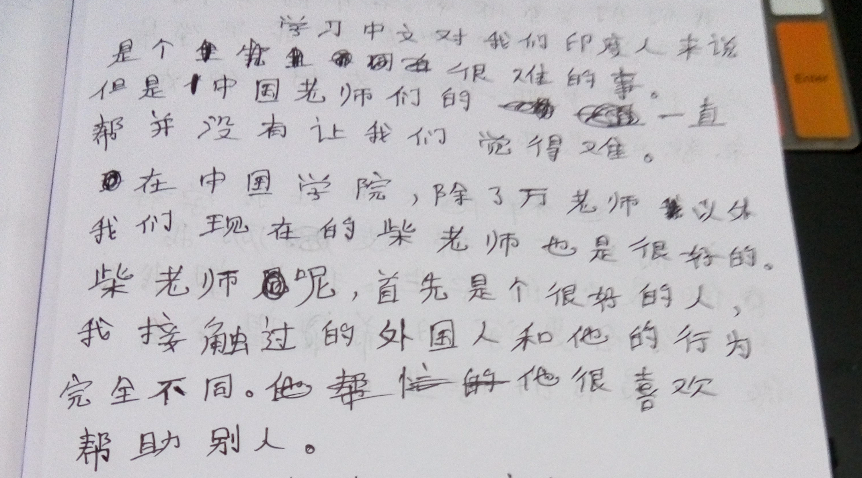 学习中文对我们印度人来说
是个很难的事。
但是中国老师们的一直
帮并没有让我们觉得难。
在中国学院,除了万老师以外
我们现在的柴老师也是很好的。
柴老师呢,首先是个很好的人,
我接触过的外国人和他的行为
完全不同。他帮忙的他很喜欢
帮助别人。
Enter